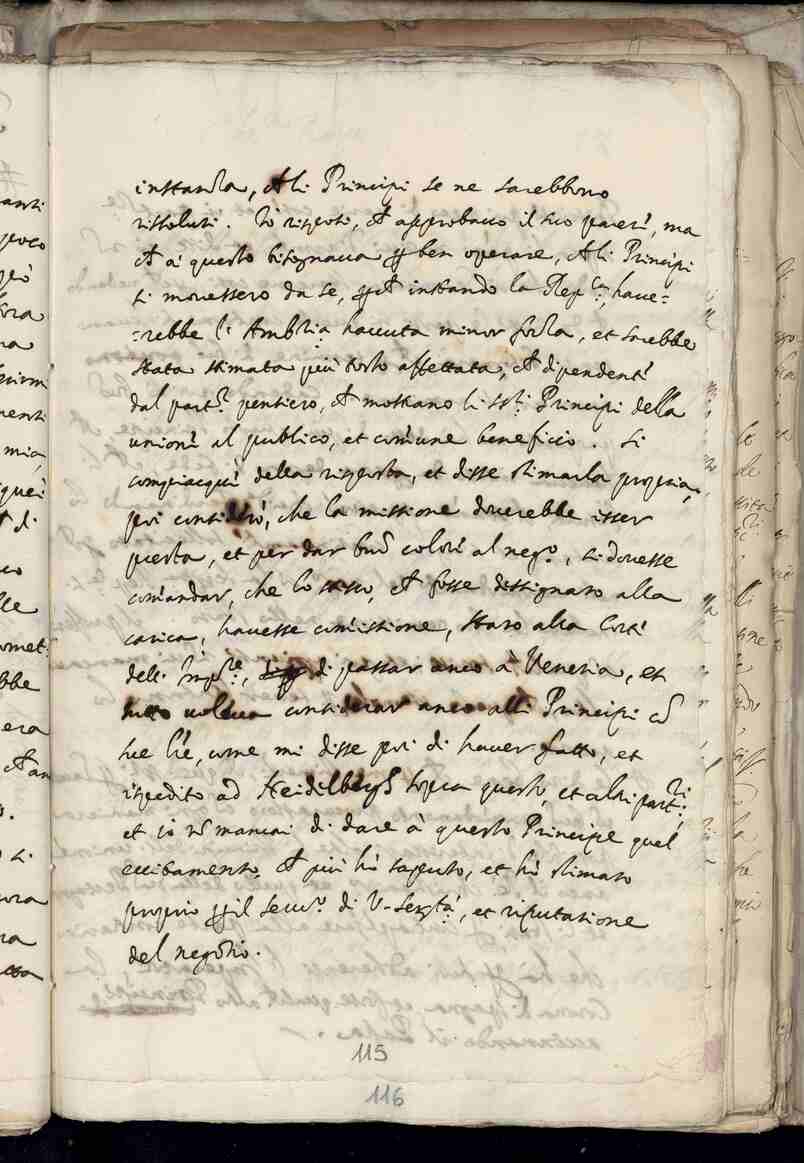 instanza, che li Principi se ne sarebbono
rissoluti. Io risposi, che approbavo il suo parere, ma
che à questo bisognava p ben operare, che li Principi
si movessero da se, p che instando la Repca, have=
=rebbe l'Ambria havuta minor forza, et sarebbe
stata stimata più tosto affettata, che dipendente
dal partr pensiero, che mostrano li ssri Principi della
unione al publico, et comune beneficio. Si
compiacque della risposta, et disse stimarla propria,
poi considerò, che la missione doverebbe esser
presta, et per dar buon colore al nego, si dovesse
comandar, che lo stesso, che fosse dissignato alla
carica, havesse comissione, stato alla Corte
dell' Impre, di passar anco à Venetia, et
tutto voleva considerar anco alli Principi con
sue lre, come mi disse poi di haver fatto, et
ispedito ad Heidelbergh sopra questo, et altri partri;
et io non mancai di dare à questo Principe quel
eccitamento, che più hò saputo, et hò stimato
proprio p il servo di V. Serta, et riputatione
del negotio.
115
116